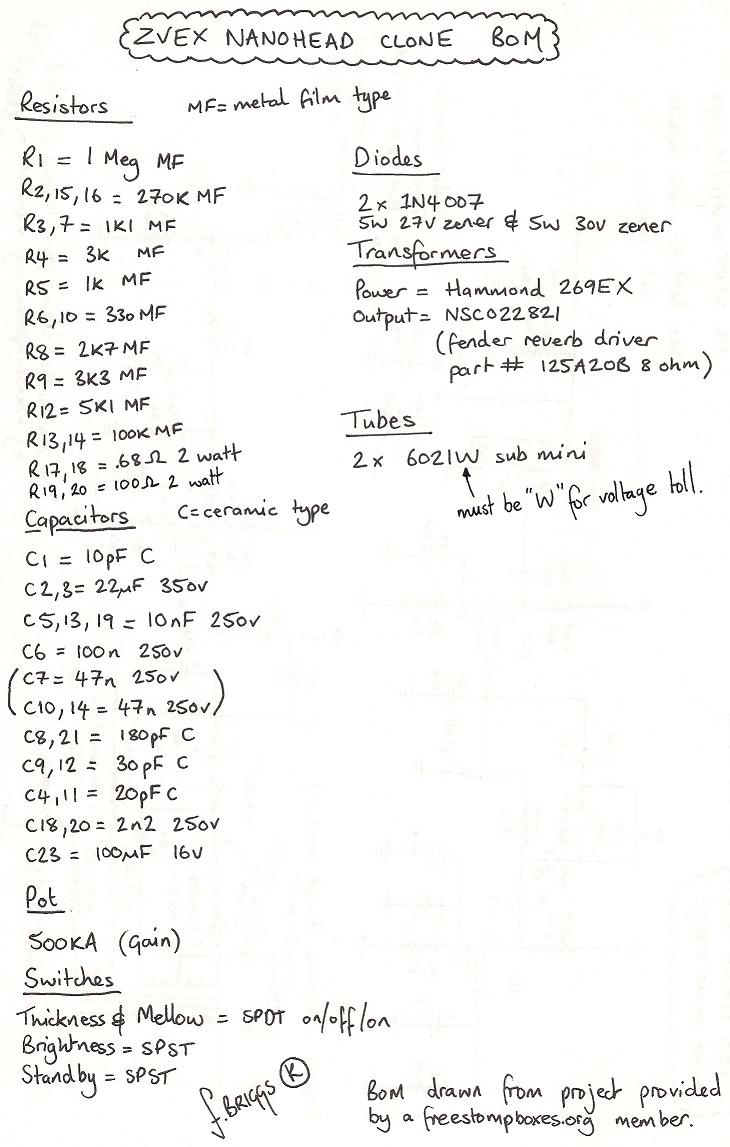 ZVEX NANOHEAD CLONE BOM
Resistors MF= metal film type
R1 = 1 Meg MF
R2,15,16 = 270K MF
R3,7 = 1K1 MF
R4 = 3K MF
R5 = 1K MF
R6,10 = 330 MF
R8 = 2K7 MF
R9 = 3K3 MF
R12= 5K1 MF
R13,14 = 100K MF
R17,18 = .68Ω 2 watt
R19,20 = 100Ω 2 watt
Capacitors C=ceramic type
C1 = 10pF C
C2,3= 22µF 350v
C5,13,19 = 10nF 250v
C6 = 100n 250v
(C7= 47n 250v
C10,14 = 47n 250v)
C8,21 = 180pF C
C9,12 = 30pF C
C4,11 = 20pF C
C18,20 = 2n2 250v
C23 = 100µF 16v
Pot
500KA (Gain)
Switches
Thickness & Mellow = SPDT on/off/on
Brightness = SPST
Standby = SPST
Diodes
2 x 1N4007
5W 27V zener & 5W 30V zener
Transformers
Power = Hammond 269EX
Output = NSC022821
(fender reverb driver
part # 125A20B 8 ohm)
Tubes
2 x 6021W sub mini
must be "W" for voltage toll.
f.BRIGGS R
BOM drawn from project provided
by a freestompboxes.org member.